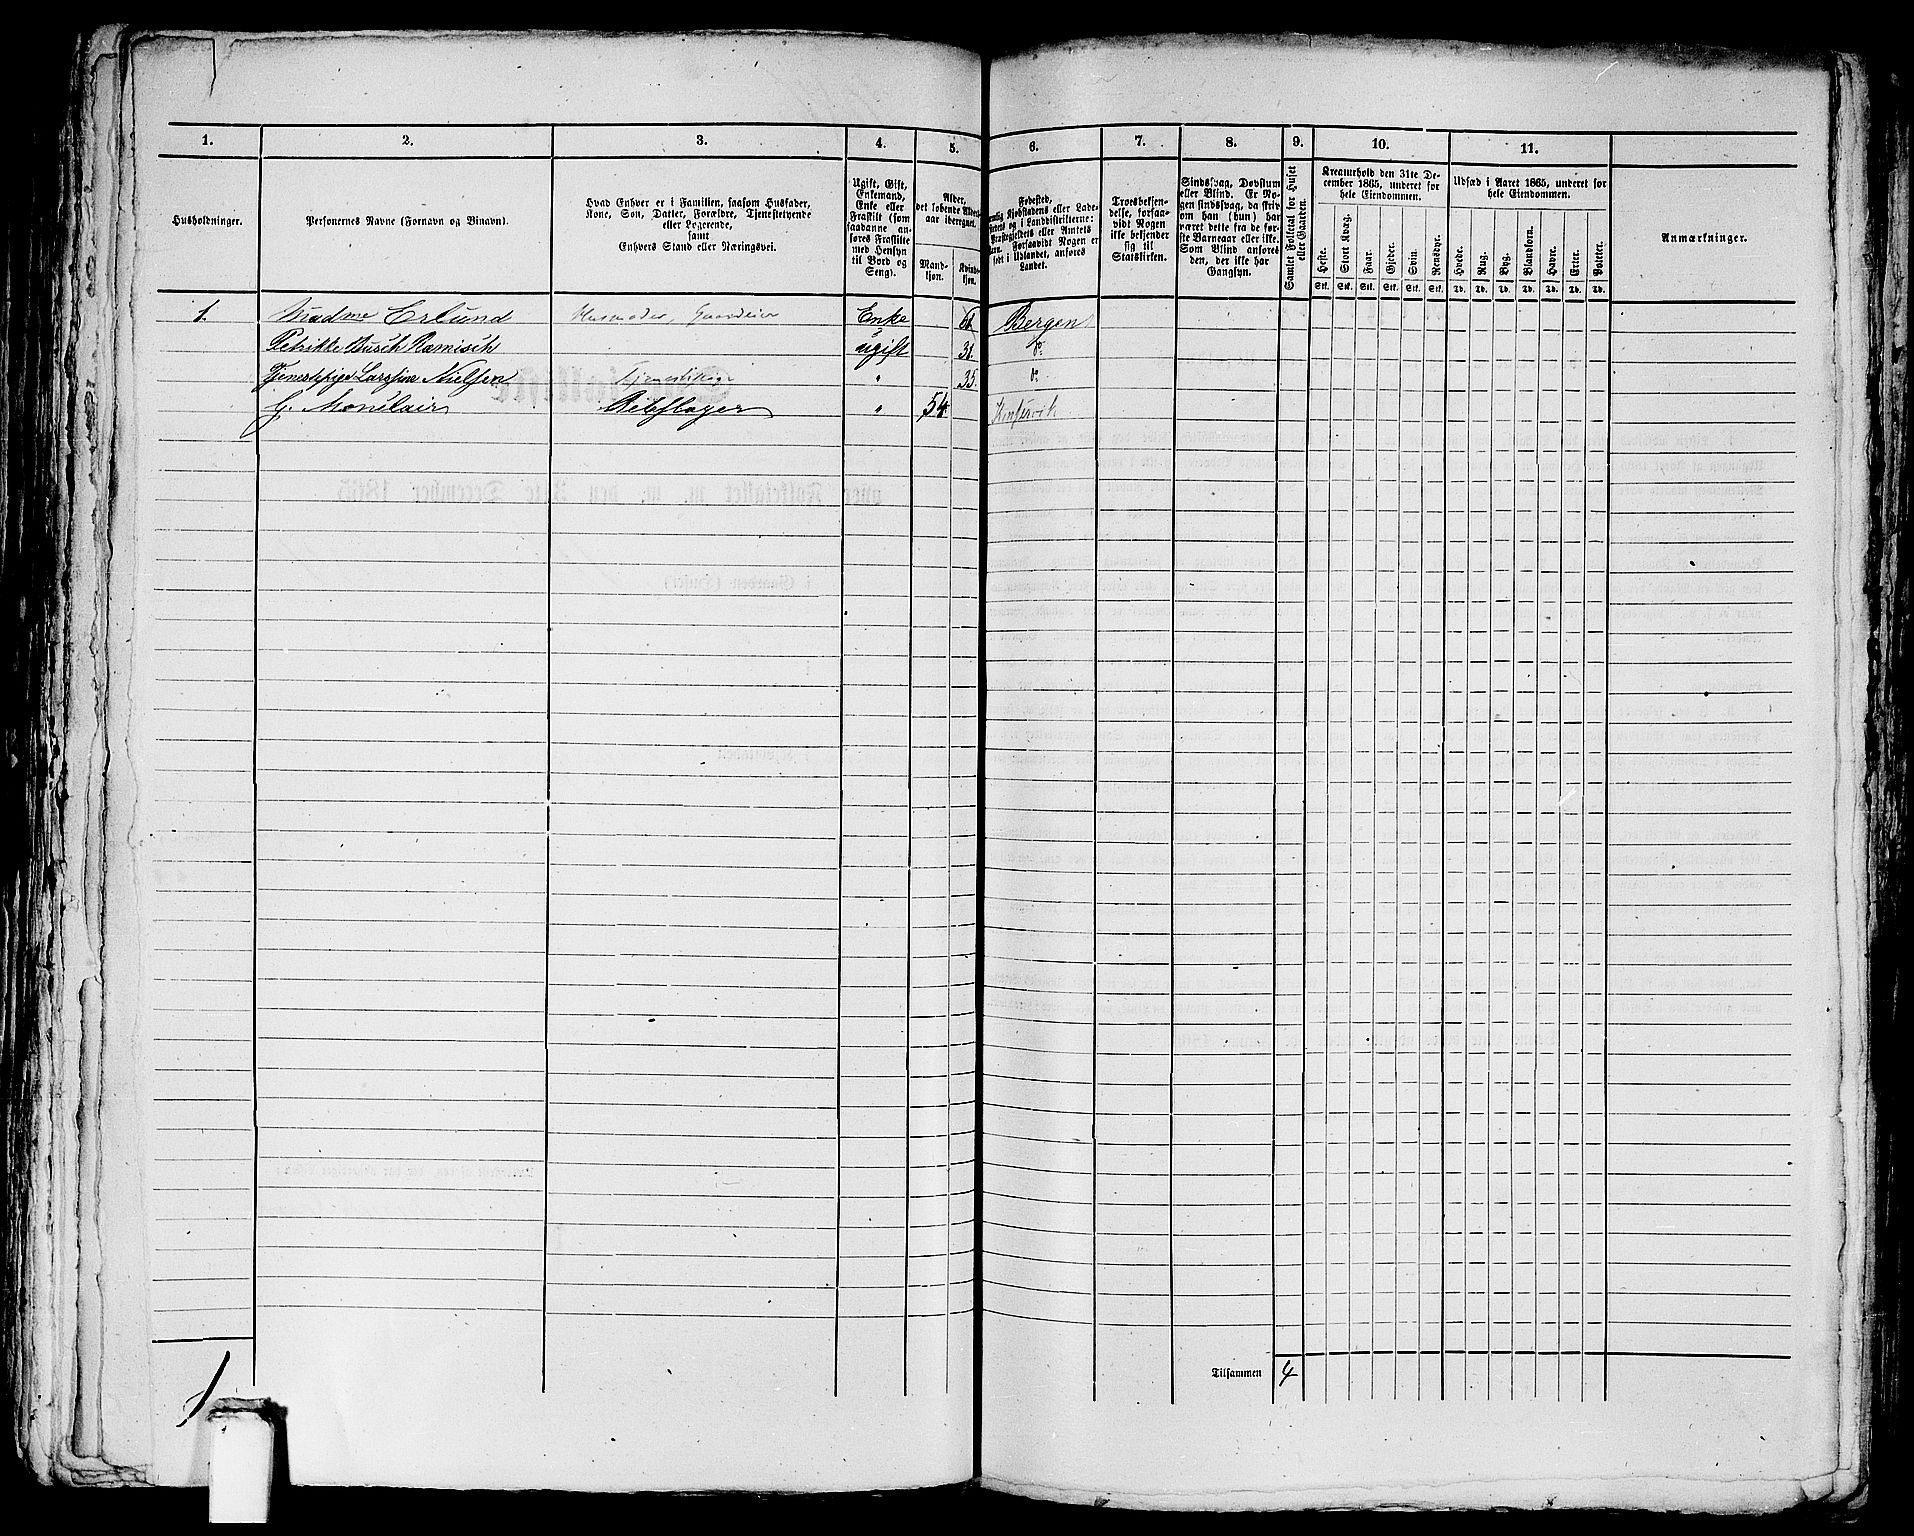 1. 2. 3. 4. 5. 6. 7. 8. 9. 10. 11.
Husholdninger.
Personernes Navne (Fornavn og Binavn).
Hvad Enhver er i Familien, saasom Husfader,
Kone, Søn, Datter, Forældre, Tjenestetyende
eller Logerende,
samt
Enhvers Stand eller Næringsvei.
Ugift, Gift,
Enkemand,
Enke eller
Fraskilt (som
saadanne an-
føres Fraskilte
med Hensyn
til Bord og
Seng).
Alder,
det løbende Alders-
aar iberegnet.
Mand-
kjøn.
Kvinde-
kjøn.
Fødested,
Kjøbstadens eller Lade-
stedets og i Landdistrikterne:
Præstegjeldets eller Amtets
Navn. Forsaavidt Nogen er
født i Udlandet, anføres
Landet.
Troesbekjen-
delse, forsaa-
vidt Nogen
ikke bekjender
sig til
Statskirken.
Sindssvag, Døvstum
eller Blind. Er No-
gen sindssvag, da skriv
om han (hun) har
været dette fra de før-
ste Barneaar eller ikke.
Som Blind anføres
den, der ikke har
Gangsyn.
Samlet Folketal for Huset
eller Gaarden.
Kreaturhold den 31te De-
cember 1865, underet for
hele Eiendommen.
Heste. Stort Kvæg. Faar. Gjeder. Svin. Rensdyr.
Stk. Stk. Stk. Stk. Stk. Stk.
Udsæd i Aaret 1865, underet for
hele Eiendommen.
Hvede. Rug. Byg. Blandkorn. Havre. Erter. Poteter.
Td. Td. Td. Td. Td. Td. Td.
Anmærkninger.
1. Madme Erlund Husmoder, Gaardeier Enke 61. Bergen
Petrikke Busch Ramisch ugift 31. do
Tjenestepige Larssine Nielsen Tjenestepige " 35. do
G. Monclair Rebslager " 54. Kinservik
Tilsammen 4
1